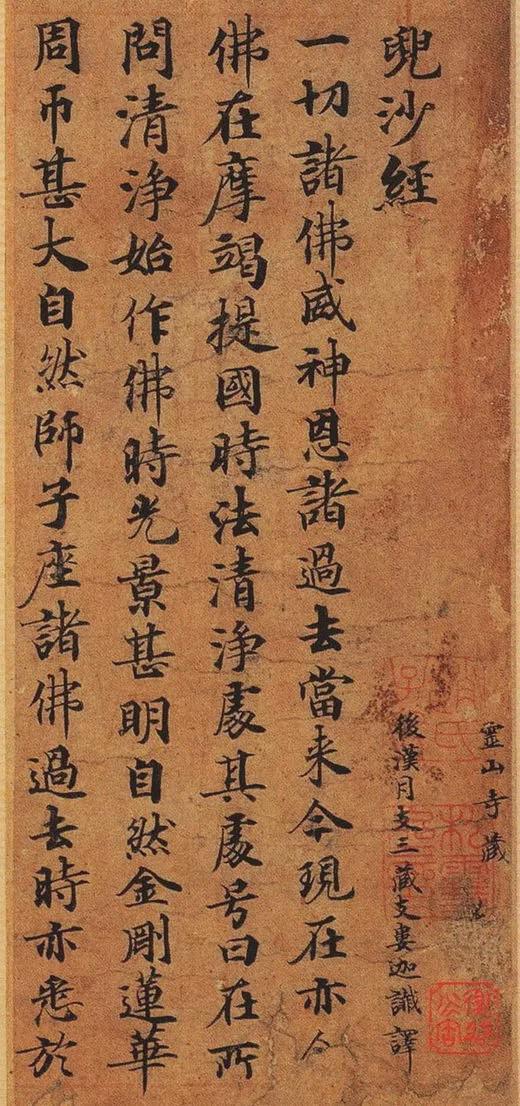 靈山寺藏
兜沙經
後漢月支三藏支婁迦讖譯
一切諸佛威神恩諸過去當来今現在亦尒
佛在摩竭提國時法清淨處其處号曰在所
問清淨始作佛時光景甚明自然金剛蓮華
周帀甚大自然師子座諸佛過去時亦悉於